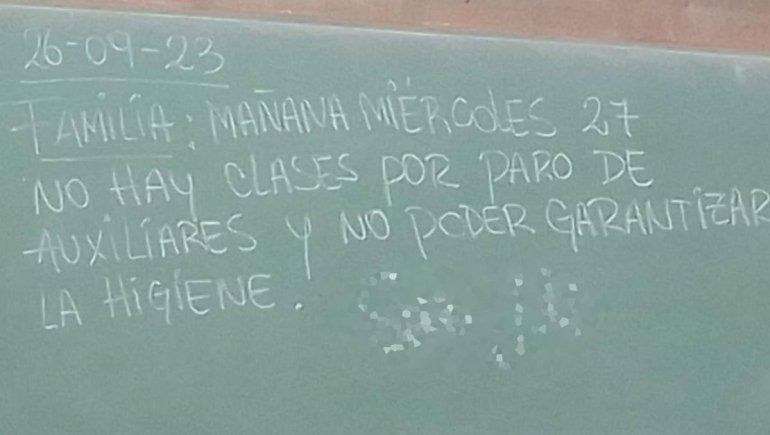 26-09-23
FAMILIA: MAÑANA MIÉRCOLES 27
NO HAY CLASES POR PARO DE
AUXILIARES Y NO PODER GARANTIZAR
LA HIGIENE.